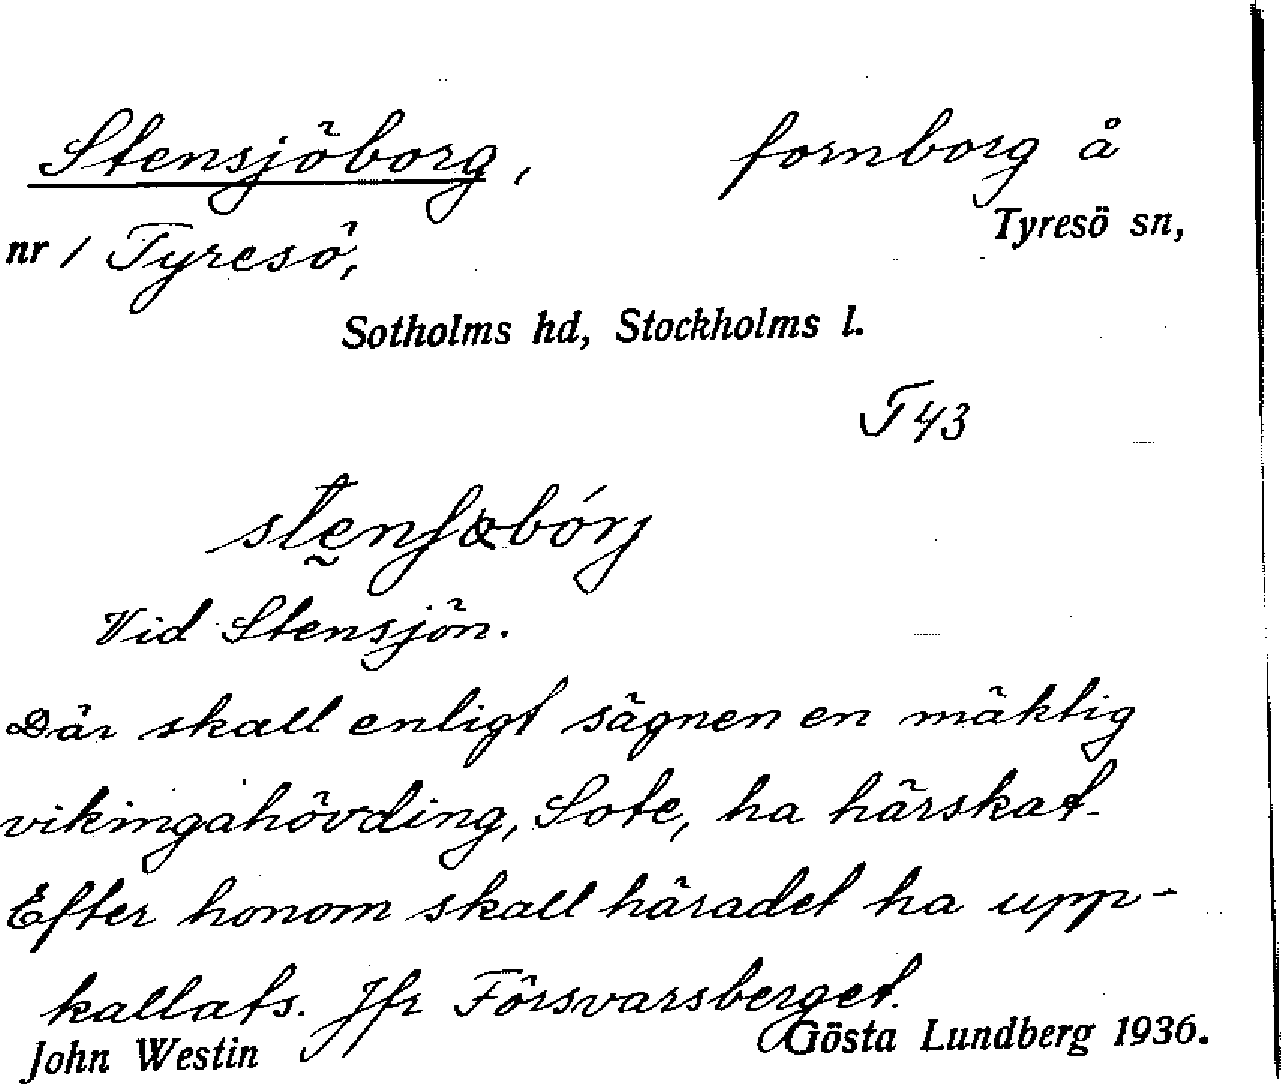 Stensjöborg, fornborg å
Tyresö sn,
nr 1 Tyresö,
Sotholms hd, Stockholms l.
T 43
Vid Stensjön.
Där skall enligt sägnen en mäktig
vikingahövding, Sote, ha härskat.
Efter honom skall häradet ha upp-
kallats. Jfr Försvarsberget.
John Westin Gösta Lundberg 1936.